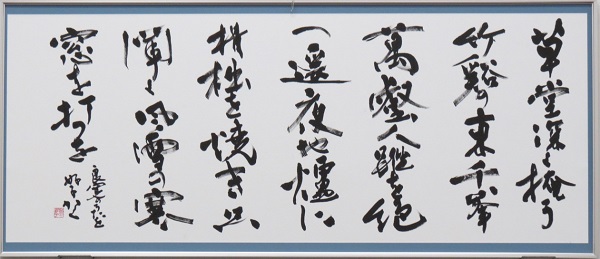 草堂深く掩う
竹谿の東千峯
萬壑人蹤を絶
つ遥夜地爐に
榾柮を焼き只
聞く風雪の寒
窓を打つを
良寛